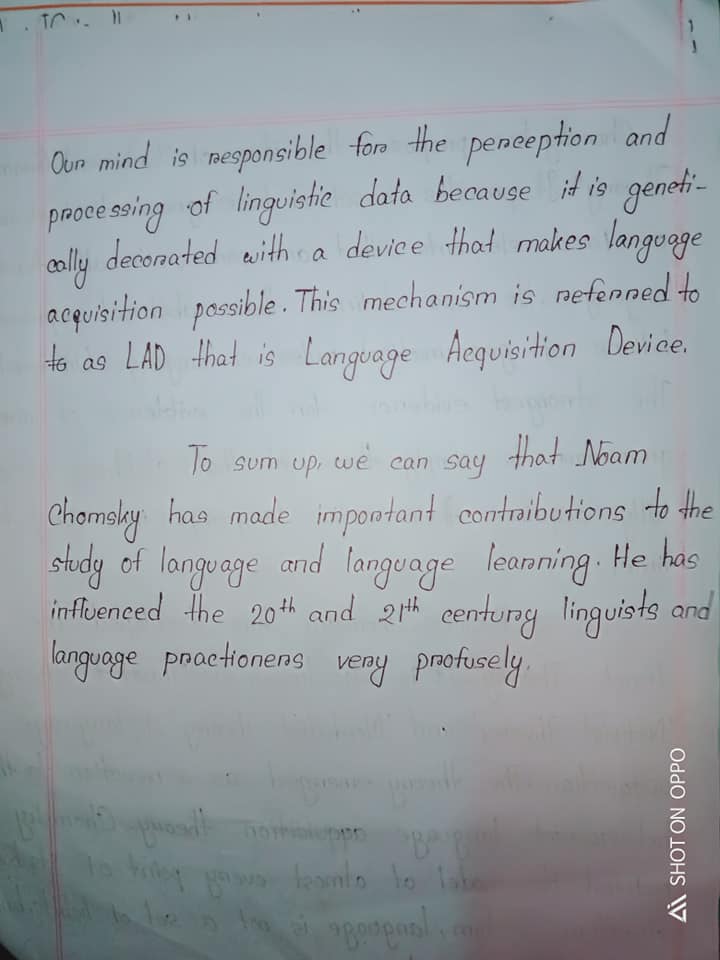 Our mind is responsible for the perception and
processing of linguistic data because it is geneti-
cally decorated with a device that makes language
acquisition possible. This mechanism is referred to
to as LAD that is Language Acquisition Device.
To sum up, we can say that Noam
Chomsky has made important contributions to the
study of language and language learning. He has
influenced the 20th and 21th century linguists and
language practioners very profusely.
SHOT ON OPPO